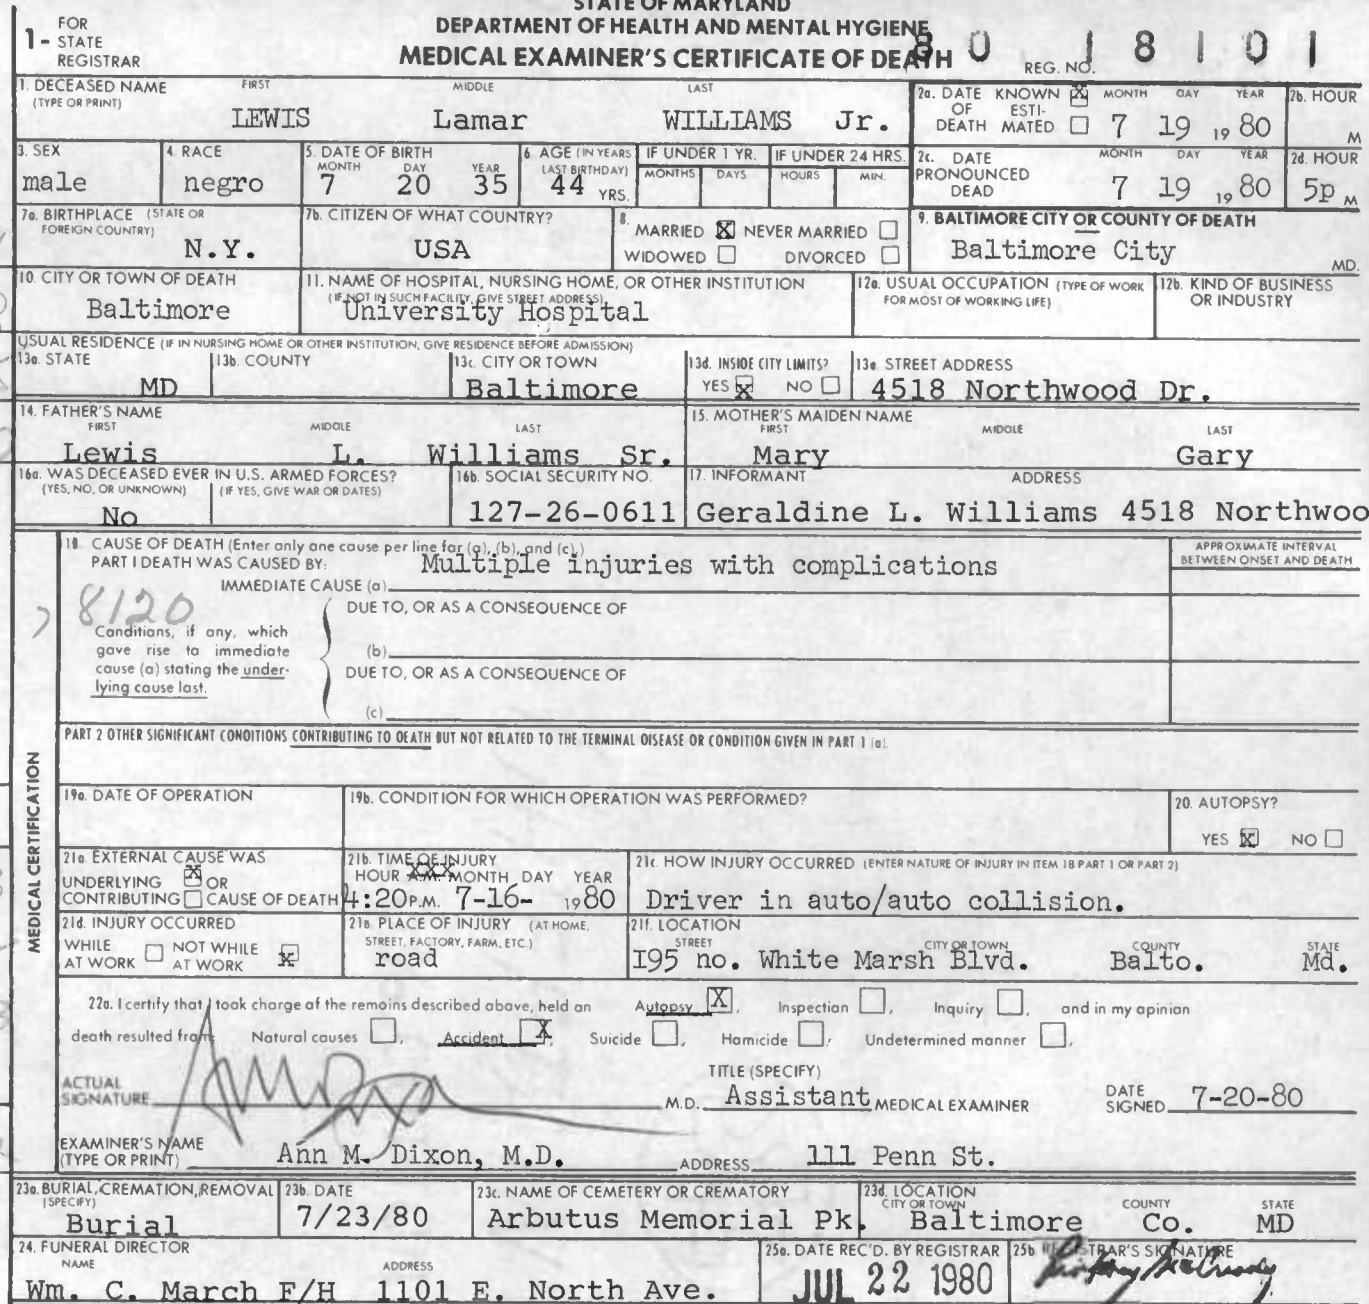 STATE OF MARYLAND
DEPARTMENT OF HEALTH AND MENTAL HYGIENE
MEDICAL EXAMINER'S CERTIFICATE OF DEATH
1- FOR STATE REGISTRAR
REG. NO. 80 18101
1. DECEASED NAME (TYPE OR PRINT) FIRST MIDDLE LAST
LEWIS Lamar WILLIAMS Jr.
2a. DATE OF DEATH KNOWN X ESTIMATED MONTH DAY YEAR 7 19 1980
2b. HOUR M
3. SEX male
4. RACE negro
5. DATE OF BIRTH MONTH DAY YEAR 7 20 35
6. AGE (IN YEARS LAST BIRTHDAY) 44 YRS.
IF UNDER 1 YR. MONTHS DAYS
IF UNDER 24 HRS. HOURS MIN.
2c. DATE PRONOUNCED DEAD MONTH DAY YEAR 7 19 1980
2d. HOUR 5p M
7a. BIRTHPLACE (STATE OR FOREIGN COUNTRY) N.Y.
7b. CITIZEN OF WHAT COUNTRY? USA
8. MARRIED X NEVER MARRIED
WIDOWED DIVORCED
9. BALTIMORE CITY OR COUNTY OF DEATH
Baltimore City MD.
10. CITY OR TOWN OF DEATH
Baltimore
11. NAME OF HOSPITAL, NURSING HOME, OR OTHER INSTITUTION
(IF NOT IN SUCH FACILITY, GIVE STREET ADDRESS)
University Hospital
12a. USUAL OCCUPATION (TYPE OF WORK FOR MOST OF WORKING LIFE)
12b. KIND OF BUSINESS OR INDUSTRY
USUAL RESIDENCE (IF IN NURSING HOME OR OTHER INSTITUTION, GIVE RESIDENCE BEFORE ADMISSION)
13a. STATE MD
13b. COUNTY
13c. CITY OR TOWN Baltimore
13d. INSIDE CITY LIMITS? YES X NO
13e STREET ADDRESS 4518 Northwood Dr.
14. FATHER'S NAME FIRST MIDDLE LAST
Lewis L. Williams Sr.
15. MOTHER'S MAIDEN NAME FIRST MIDDLE LAST
Mary Gary
16a. WAS DECEASED EVER IN U.S. ARMED FORCES?
(YES, NO, OR UNKNOWN) (IF YES, GIVE WAR OR DATES)
No
16b. SOCIAL SECURITY NO.
127-26-0611
17. INFORMANT ADDRESS
Geraldine L. Williams 4518 Northwoo
18. CAUSE OF DEATH (Enter only one cause per line for (a), (b), and (c).)
PART I DEATH WAS CAUSED BY:
Multiple injuries with complications
IMMEDIATE CAUSE (a)
APPROXIMATE INTERVAL BETWEEN ONSET AND DEATH
8120
Conditions, if any, which gave rise to immediate cause (a) stating the underlying cause last.
DUE TO, OR AS A CONSEQUENCE OF
(b)
DUE TO, OR AS A CONSEQUENCE OF
(c)
PART 2 OTHER SIGNIFICANT CONDITIONS CONTRIBUTING TO DEATH BUT NOT RELATED TO THE TERMINAL DISEASE OR CONDITION GIVEN IN PART 1 (a).
MEDICAL CERTIFICATION
19a. DATE OF OPERATION
19b. CONDITION FOR WHICH OPERATION WAS PERFORMED?
20. AUTOPSY?
YES X NO
21a. EXTERNAL CAUSE WAS
UNDERLYING X OR
CONTRIBUTING CAUSE OF DEATH
21b. TIME OF INJURY
HOUR A.M. MONTH DAY YEAR
4:20 P.M. 7-16- 1980
21c. HOW INJURY OCCURRED (ENTER NATURE OF INJURY IN ITEM 18 PART 1 OR PART 2)
Driver in auto/auto collision.
21d. INJURY OCCURRED
WHILE AT WORK NOT WHILE AT WORK X
21e. PLACE OF INJURY (AT HOME, STREET, FACTORY, FARM, ETC.)
road
21f. LOCATION
STREET CITY OR TOWN COUNTY STATE
I95 no. White Marsh Blvd. Balto. Md.
22a. I certify that I took charge of the remains described above, held an Autopsy X, Inspection, Inquiry, and in my opinion
death resulted from: Natural causes, Accident X, Suicide, Homicide, Undetermined manner,
ACTUAL SIGNATURE M.D.
TITLE (SPECIFY)
Assistant MEDICAL EXAMINER
DATE SIGNED 7-20-80
EXAMINER'S NAME (TYPE OR PRINT) Ann M. Dixon, M.D.
ADDRESS 111 Penn St.
23a. BURIAL, CREMATION, REMOVAL (SPECIFY)
Burial
23b. DATE
7/23/80
23c. NAME OF CEMETERY OR CREMATORY
Arbutus Memorial Pk.
23d. LOCATION CITY OR TOWN COUNTY STATE
Baltimore Co. MD
24. FUNERAL DIRECTOR
NAME ADDRESS
Wm. C. March F/H 1101 E. North Ave.
25a. DATE REC'D. BY REGISTRAR
JUL 22 1980
25b. REGISTRAR'S SIGNATURE